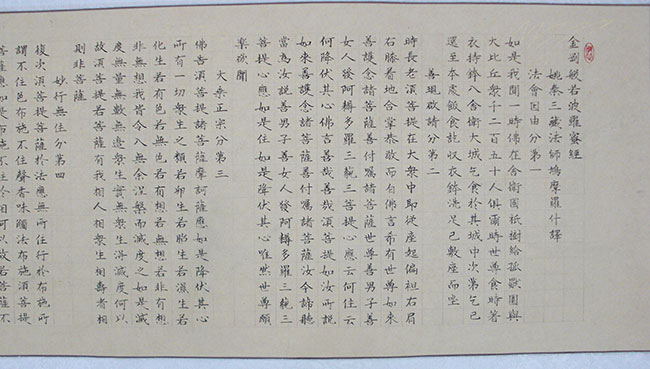 金剛般若波羅蜜經
姚秦三藏法師鳩摩羅什譯
法會因由分第一
如是我聞一時佛在舍衛國祇樹給孤獨園與
大比丘眾千二百五十人俱爾時世尊食時著
衣持鉢入舍衛大城乞食於其城中次第乞已
還至本處飯食訖收衣鉢洗足已敷座而坐
善現啟請分第二
時長老須菩提在大眾中即從座起偏袒右肩
右膝着地合掌恭敬而白佛言希有世尊如來
善護念諸菩薩善付囑諸菩薩世尊善男子善
女人發阿耨多羅三藐三菩提心應云何住云
何降伏其心佛言善哉善哉須菩提如汝所說
如來善護念諸菩薩善付囑諸菩薩汝今諦聽
當為汝說善男子善女人發阿耨多羅三藐三
菩提心應如是住如是降伏其心唯然世尊願
樂欲聞
大乘正宗分第三
佛告須菩提諸菩薩摩訶薩應如是降伏其心
所有一切眾生之類若卵生若胎生若濕生若
化生若有色若無色若有想若無想若非有想
非無想我皆令入無餘涅槃而滅度之如是滅
度無量無數無邊眾生實無眾生得滅度何以
故須菩提若菩薩有我相人相眾生相壽者相
則非菩薩
妙行無住分第四
復次須菩提菩薩於法應無所住行於布施所
謂不住色布施不住聲香味觸法布施須菩提
菩薩應如是布施不住於相何以故若菩薩不